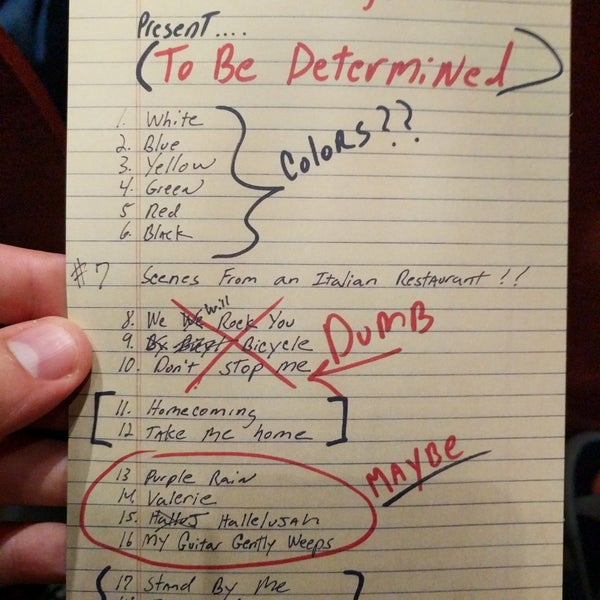 Present....
(To Be Determined)
1. White
2. Blue
3. Yellow
4. Green
5 Red
6. Black
Colors??
#7 Scenes From an Italian Restaurant!!
8. We We Will Rock You
9. Bicycle
10. Don't stop me
DUMB
[11. Homecoming
12 Take me home]
13 Purple Rain
14. Valerie
15. Hallelujah
16 My Guitar Gently Weeps
MAYBE
17 Stand By Me